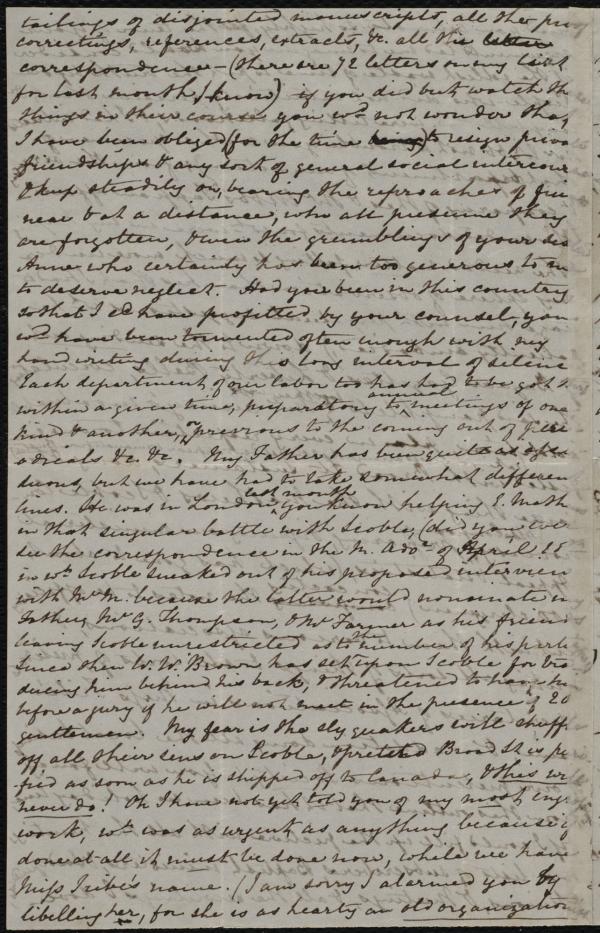 tailings of disjointed manuscripts, all the pro
correctings, references, extracts, &c. all the
correspondence – (there are 72 letters on my list
for last month, I know) if you did but watch th
things in their course you wd not wonder tha
I have been obliged (for the time being) to resign priva
friendships & any sort of general social intercour
& keep steadily on, bearing the reproaches of frie
near & at a distance, who all presume they
are forgotten, & even the grumblings of your sis
Anne who certainly has been too generous to m
to deserve neglect. Had you been in this country
so that I cd have profitted by your counsel, you
wd have been tormented often enough with my
hand writing during this long interval of silenc
Each department of our labor too has had to be got
within a given time, preparatory to annual meetings of one
kind & another, or previous to the coming out of
&c. &c. My Father has been quite as
duous, but we have had to take somewhat differen
lines. He was in London last month, you know helping E. Math
in that singular battle with Scoble, (did you ever
see the correspondence in the A. Advr of April 15
in wh Scoble sneaked out of his proposed interview
with Mr M. because the latter would nominate m
Father, Mr G. Thompson, & Mr Farmer as his friend
leaving Scoble unrestricted as to the number of his part
Since then W. W. Brown has set upon Scoble for tra
ducing him behind his back, & threatened to have hi
before a jury if he will not meet in the presence of 20
gentlemen. My fear is the sly quakers will shuff
off all their sins on Scoble, & pretend Broad St is pu
fied as soon as he is shipped off to Canada, & this wi
never do! Oh I have not yet told you of my most
work, wh was as urgent as anything because if
done at all it must be done now, while we have
Miss Iribe's name. (I am sorry I alarmed you by
libelling her, for she is as hearty an old organization